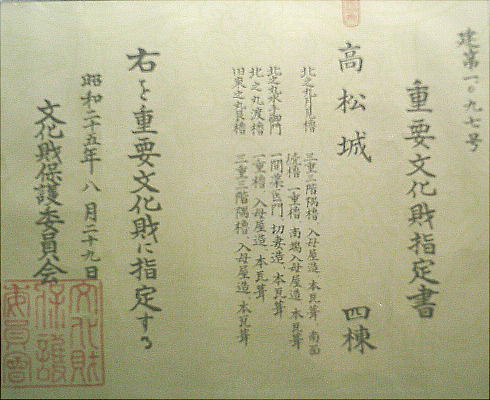 建第一〇九七号
重要文化財指定書
高松城 四棟
北之丸月見櫓 三重三階隅櫓 入母屋造 本瓦葺 南面
続櫓 一重櫓 南端入母屋造 本瓦葺
北之丸水手御門 一間薬医門、切妻造、本瓦葺
北之丸渡櫓 一重櫓 入母屋造、本瓦葺
旧東之丸艮櫓 三重三階隅櫓 入母屋造 本瓦葺
右を重要文化財に指定する
昭和二十五年八月二十九日
文化財保護委員会
文化財保護委員會